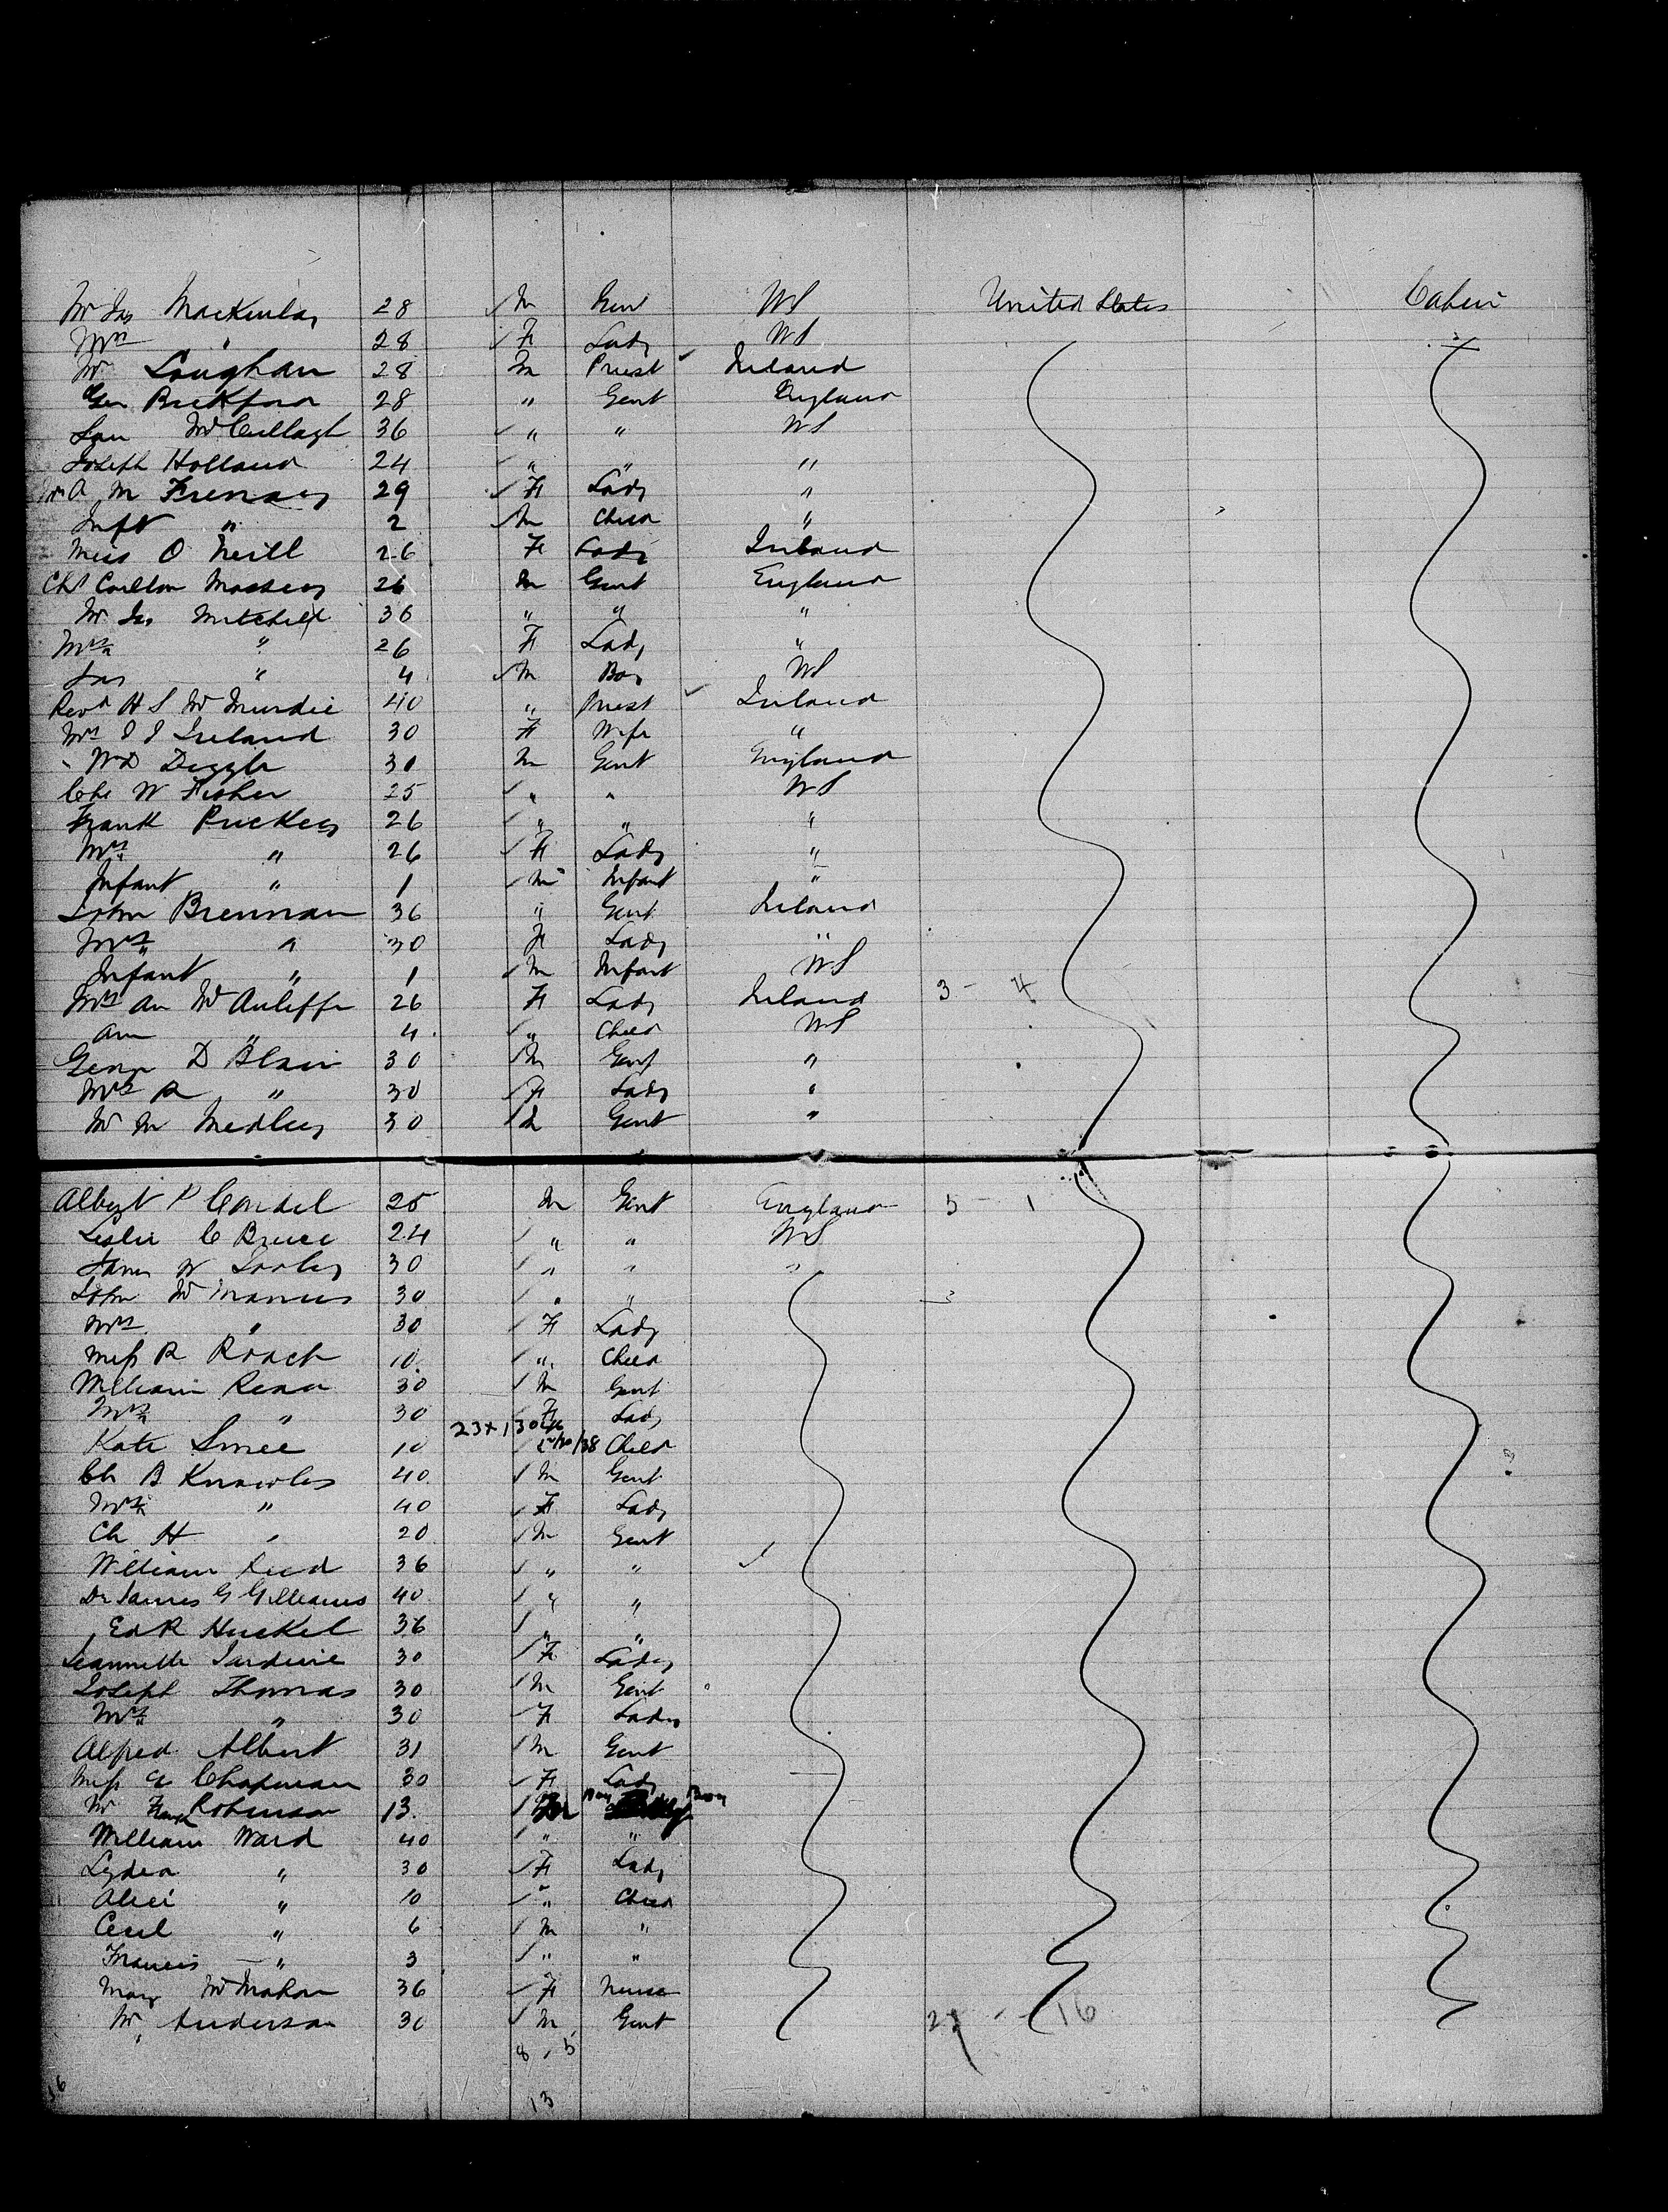 Mr Jas Mackinlay 28 ✓ M Gent US United States Cabin
Mrs " 28 ✓ F Lady US
Mr Loughan 28 M Priest ✓ Ireland
Geo Bickford 28 " Gent England
McCullagh 36 ✓ " " US
Joseph Holland 24 ✓ " " "
A M 29 ✓ F Lady "
Inft " 2 ✓ M Child "
Miss O Neill 26 F Lady Ireland
Chs Carlton Massey 26 M Gent England
Mr Jas Mitchell 36 " " "
Mrs " 26 F Lady "
Jas " 4 ✓ M Boy US
Revd H S McMurdie 40 " Priest ✓ Ireland
Mrs J J Ireland 30 F Wife "
W D Diggle 30 M Gent England
Chs W Fisher 25 ✓ " " US
Frank Puckey 26 ✓ " " "
Mrs " 26 ✓ F Lady "
Infant " 1 ✓ M Infant "
John Brennan 36 " Gent Ireland
Mrs " 30 F Lady "
Infant " 1 ✓ M Infant US
Mrs An McAuliffe 26 F Lady Ireland 3 - 4
Ann " 4 ✓ " Child US
George D Blair 30 ✓ M Gent "
Mrs R " 30 ✓ F Lady "
Mr M Medley 30 ✓ Gent "
Albert P Condel 25 M Gent England 5 - 1
Leslie C Bruce 24 ✓ " " US
James W Sooley 30 ✓ " " "
John McManus 30 ✓ " "
Mrs " 30 ✓ F Lady
Miss R Roach 10 ✓ " Child
William Read 30 ✓ M Gent
Mrs " 30 F Lady
Kate Smee 10 Child
Ch B Knowles 40 ✓ M Gent
Mrs " 40 ✓ F Lady
Ch H " 20 ✓ M Gent
William Reed 36 ✓ " " ✓
Dr James G Gilleams 40 ✓ " "
Ed R Huckel 36 ✓ " "
Jeannette Jardine 30 ✓ F Lady
Joseph Thomas 30 ✓ M Gent
Mrs " 30 F Lady
Alfred Albert 31 ✓ M Gent
Miss E Chapman 30 ✓ F Lady
Mr Frank Robinson 13 ✓ M Boy
William Ward 40 ✓ " "
Lydia " 30 ✓ F Lady
Alice " 10 ✓ " Child
Cecil " 6 ✓ M "
Francis " 3 ✓ " "
Mary McMahon 36 ✓ F Nurse
Mr Anderson 30 ✓ M Gent 16
8 , 5
13